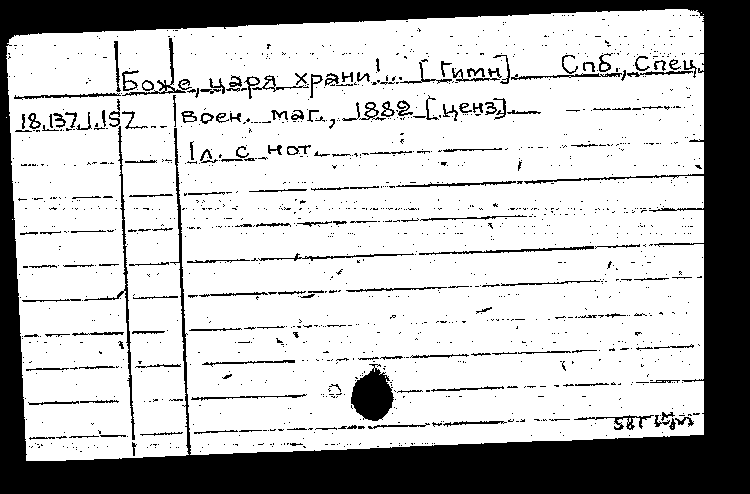 Боже, царя храни!... [Гимн]. Спб., Спец.
18.137.1.157 воен. маг., 1882 [ценз].
1 л. с нот.